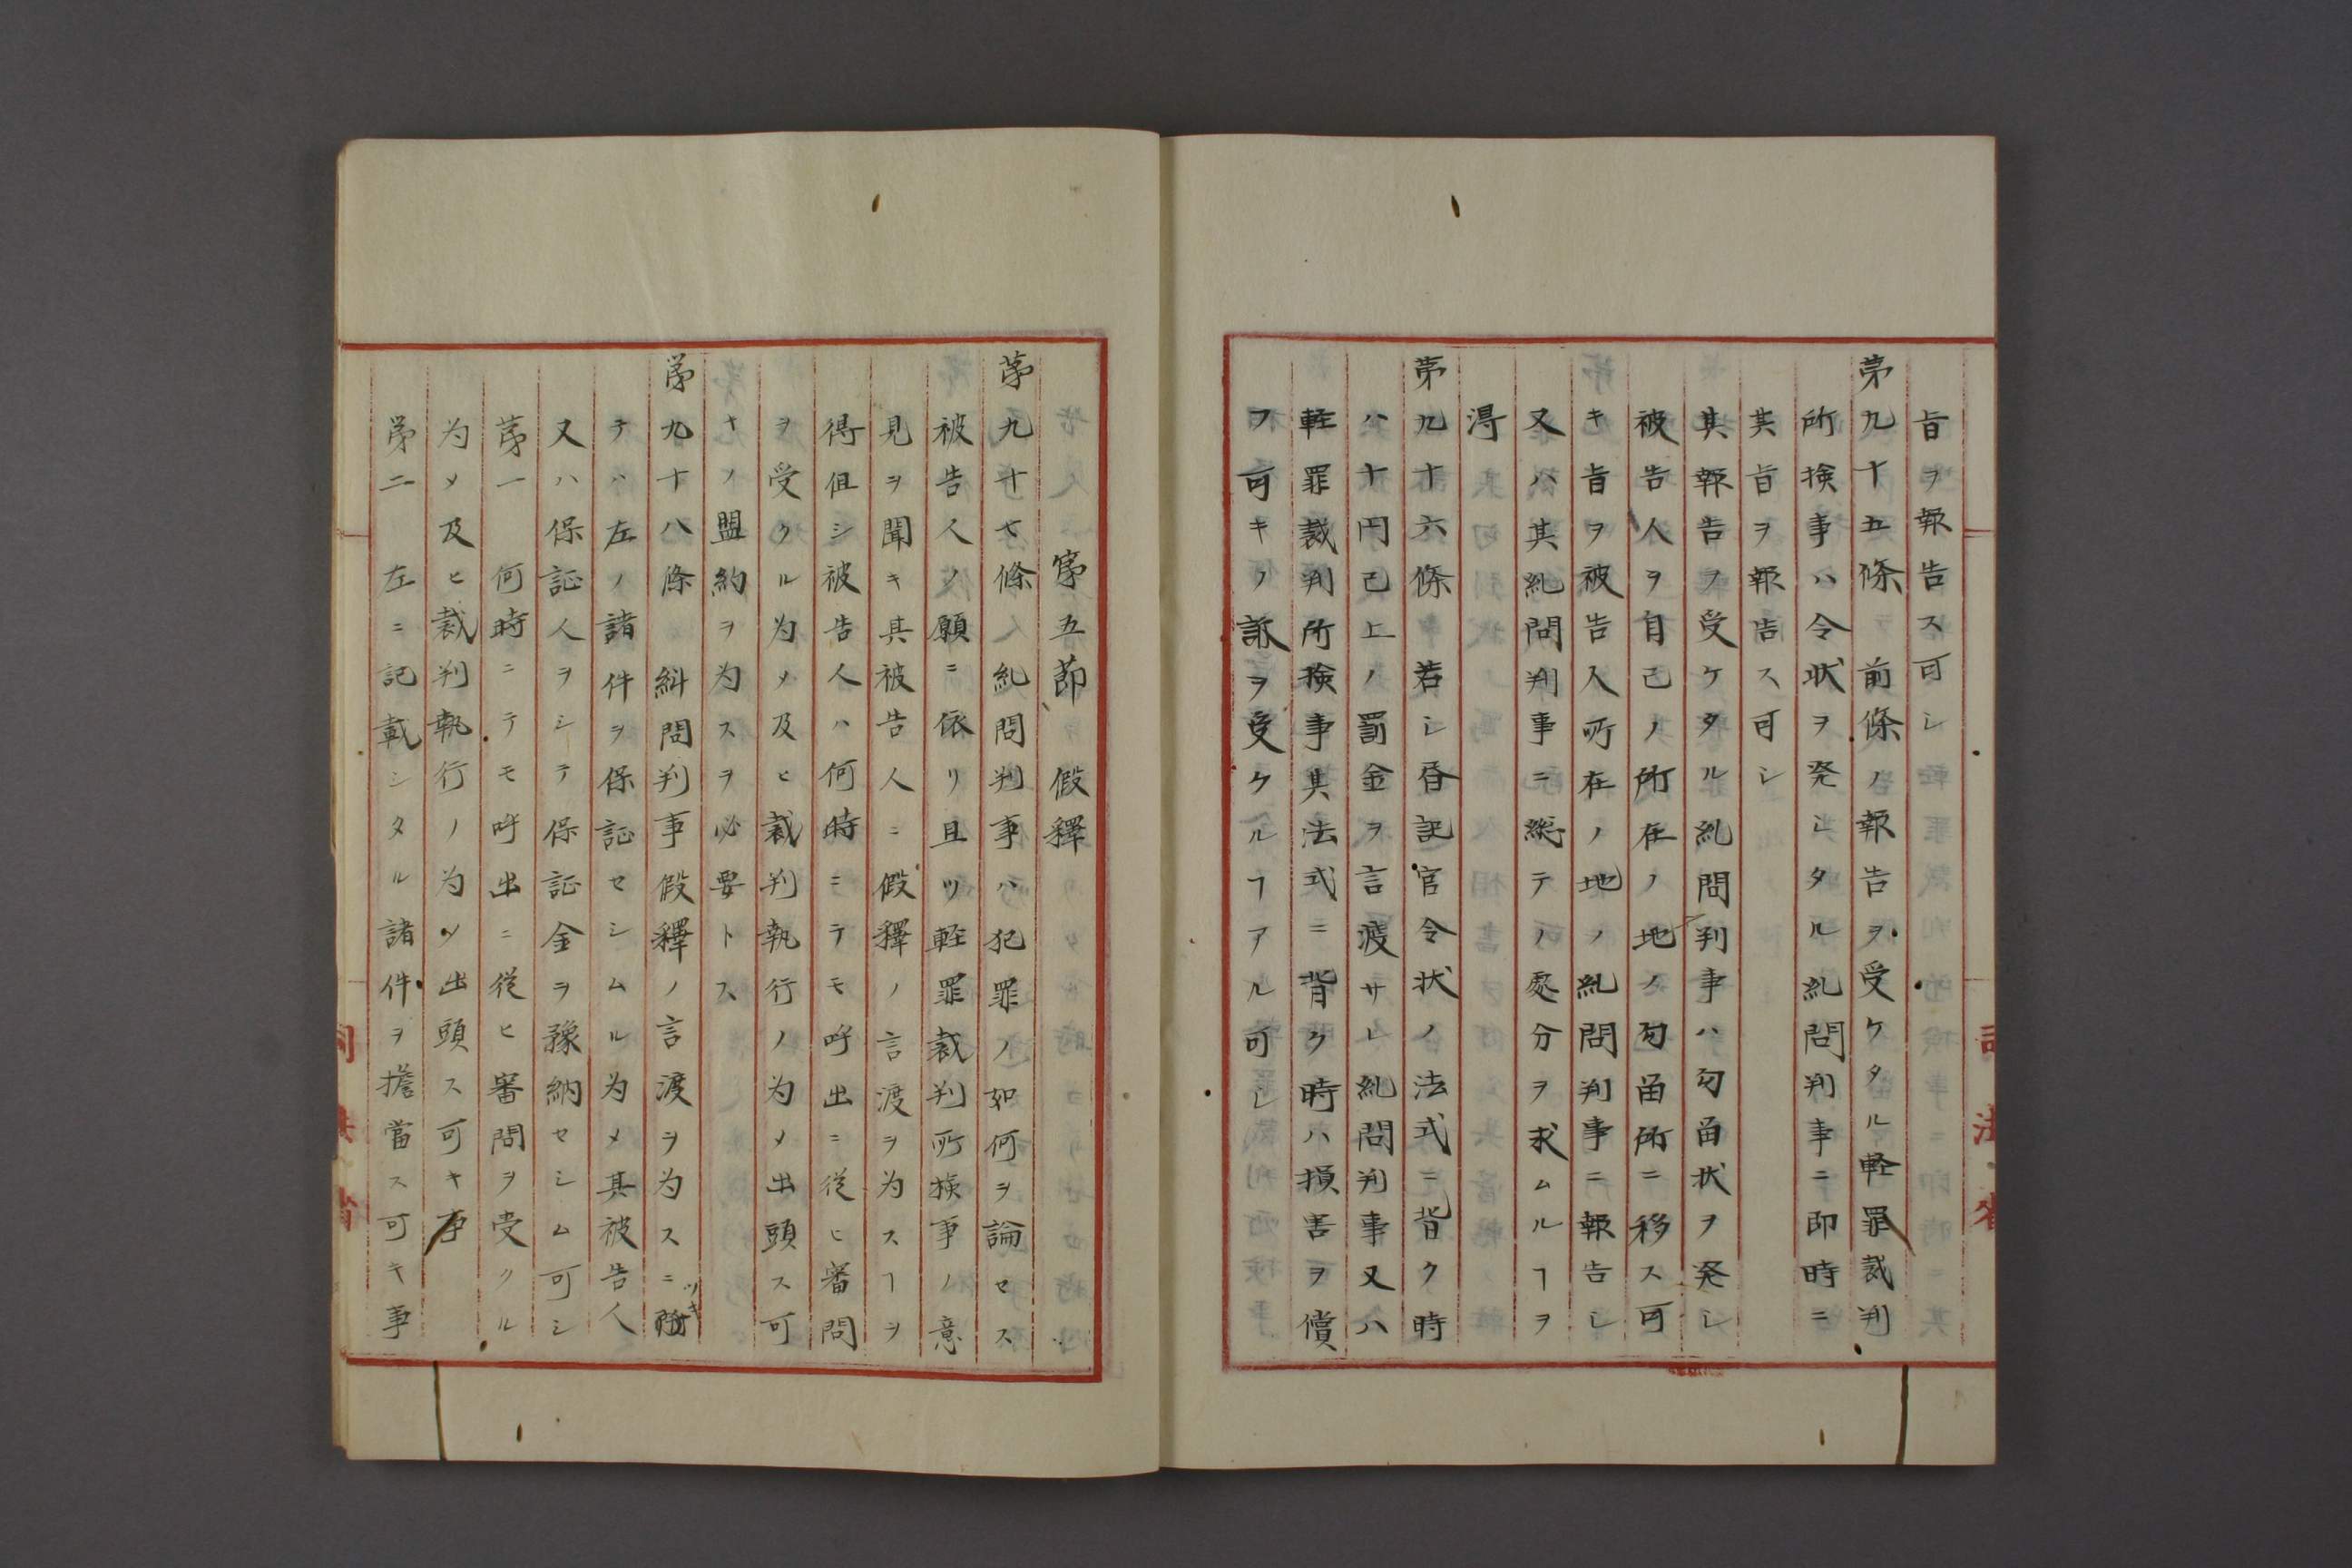 旨ヲ報告ス可シ
第九十五條　前條ノ報告ヲ受ケタル軽罪裁判
所検事ハ令状ヲ発シタル糺問判事ニ即時ニ
其旨ヲ報告ス可シ
其報告ヲ受ケタル糺問判事ハ勾留状ヲ発シ
被告人ヲ自己ノ所在ノ地ノ勾留所ニ移ス可
キ旨ヲ被告人所在ノ地ノ糺問判事ニ報告シ
又ハ其糺問判事ニ総テノ處分ヲ求ムルヿヲ
得
第九十六條　若シ書記官令状ノ法式ニ背ク時
ハ十円已上ノ罰金ヲ言渡サレ糺問判事又ハ
軽罪裁判所検事其法式ニ背ク時ハ損害ヲ償
フ可キノ訴ヲ受クルヿアル可シ
第五節　假釋
第九十七條　糺問判事ハ犯罪ノ如何ヲ論セス
被告人ノ願ニ依リ且ツ軽罪裁判所検事ノ意
見ヲ聞キ其被告人ニ假釋ノ言渡ヲ为スヿヲ
得但シ被告人ハ何時ニテモ呼出ニ従ヒ審問
ヲ受クル为メ及ヒ裁判執行ノ为メ出頭ス可
キノ盟約ヲ为スヲ必要トス
第九十八條　糾問判事假釋ノ言渡ヲ为スニ付
ツキ
テハ左ノ諸件ヲ保証セシムル为メ其被告人
又ハ保証人ヲシテ保証金ヲ豫納セシム可シ
第一　何時ニテモ呼出ニ従ヒ審問ヲ受クル
为メ及ヒ裁判執行ノ为メ出頭ス可キ事
第二　左ニ記載シタル諸件ヲ擔當ス可キ事
司法省
司法省